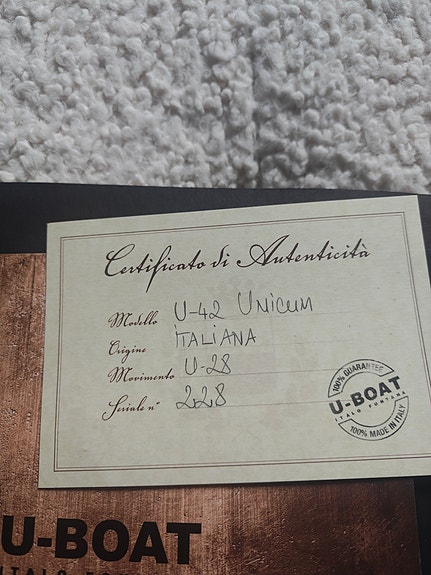 Certificato di Autenticità
Modello U-42 Unicum
Origine iTALIANA
Movimento U-28
Seriale n° 228
100% GUARANTEE
U-BOAT
ITALO FONTANA
100% MADE IN ITALY
U-BOAT
ITALO FON